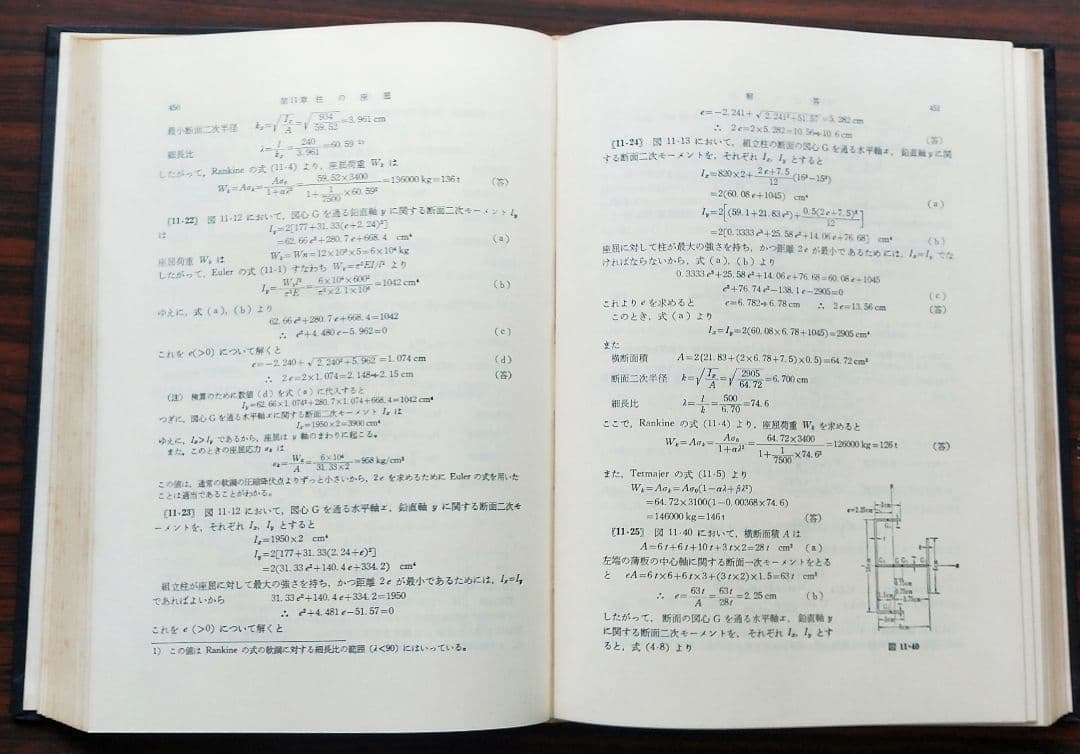 450 第11章 柱の座屈
最小断面二次半径 kₓ=√(Iₓ/A)=√(934/59.52)=3.961 cm
細長比 λ=l/kₓ=240/3.961=60.59 ¹⁾
したがって, Rankine の式 (11·4) より, 座屈荷重 Wₖ は
Wₖ=Aσₖ=Aσ₀/(1+αλ²)=59.52×3400/(1+(1/7500)×60.59²)=136000 kg=136 t (答)
〔11·22〕 図 11·12 において, 図心 G を通る鉛直軸 y に関する断面二次モーメント Iᵧ
は Iᵧ=2[177+31.33(e+2.24)²]
=62.66 e²+280.7 e+668.4 cm⁴ (a)
座屈荷重 Wₖ は Wₖ=Wn=12×10³×5=6×10⁴ kg
したがって, Euler の式 (11·1) すなわち Wₖ=π²EI/l² より
Iᵧ=Wₖl²/π²E=6×10⁴×600²/π²×2.1×10⁶=1042 cm⁴ (b)
ゆえに, 式 (a), (b) より
62.66 e²+280.7 e+668.4=1042
∴ e²+4.480 e−5.962=0 (c)
これを e(>0) について解くと
e=−2.240+√(2.240²+5.962)=1.074 cm (d)
∴ 2e=2×1.074=2.148→2.15 cm (答)
(注) 検算のために数値 (d) を式 (a) に代入すると
Iᵧ=62.66×1.074²+280.7×1.074+668.4=1042 cm⁴
つぎに, 図心 G を通る水平軸 x に関する断面二次モーメント Iₓ は
Iₓ=1950×2=3900 cm⁴
ゆえに, Iₓ>Iᵧ であるから, 座屈は y 軸のまわりに起こる。
また, このときの座屈応力 σₖ は
σₖ=Wₖ/A=6×10⁴/31.33×2=958 kg/cm²
この値は, 通常の軟鋼の圧縮降伏点よりずっと小さいから, 2e を求めるために Euler の式を用いた
ことは適当であることがわかる。
〔11·23〕 図 11·12 において, 図心 G を通る水平軸 x, 鉛直軸 y に関する断面二次モ
ーメントを, それぞれ Iₓ, Iᵧ とすると
Iₓ=1950×2 cm⁴
Iᵧ=2[177+31.33(2.24+e)²]
=2(31.33 e²+140.4 e+334.2) cm⁴
組立柱が座屈に対して最大の強さを持ち, かつ距離 2e が最小であるためには, Iₓ=Iᵧ
であればよいから 31.33 e²+140.4 e+334.2=1950
∴ e²+4.481 e−51.57=0
これを e (>0) について解くと
1) この値は Rankine の式の軟鋼に対する細長比の範囲 (λ<90) にはいっている。
解 答 451
e=−2.241+√(2.241²+51.57)=5.282 cm
∴ 2e=2×5.282=10.56→10.6 cm (答)
〔11·24〕 図 11·13 において, 組立柱の断面の図心 G を通る水平軸 x, 鉛直軸 y に関
する断面二次モーメントを, それぞれ Iₓ, Iᵧ とすると
Iₓ=820×2+(2e+7.5)/12 (16³−15³)
=2(60.08 e+1045) cm⁴ (a)
Iᵧ=2[(59.1+21.83 e²)+0.5(2e+7.5)³/12]
=2[0.3333 e³+25.58 e²+14.06 e+76.68] cm⁴ (b)
座屈に対して柱が最大の強さを持ち, かつ距離 2e が最小であるためには, Iₓ=Iᵧ でな
ければならないから, 式 (a), (b) より
0.3333 e³+25.58 e²+14.06 e+76.68=60.08 e+1045
e³+76.74 e²−138.1 e−2905=0 (c)
これより e を求めると e=6.782→6.78 cm ∴ 2e=13.56 cm (答)
このとき, 式 (a) より
Iₓ=Iᵧ=2(60.08×6.78+1045)=2905 cm⁴
また
横断面積 A=2{21.83+(2×6.78+7.5)×0.5}=64.72 cm²
断面二次半径 k=√(Iᵧ/A)=√(2905/64.72)=6.700 cm
細長比 λ=l/k=500/6.70=74.6
ここで, Rankine の式 (11·4) より, 座屈荷重 Wₖ を求めると
Wₖ=Aσₖ=Aσ₀/(1+αλ²)=64.72×3400/(1+(1/7500)×74.6²)=126000 kg=126 t (答)
また, Tetmajer の式 (11·5) より
Wₖ=Aσₖ=Aσ₀(1−αλ+βλ²)
=64.72×3100(1−0.00368×74.6)
=146000 kg=146 t (答)
〔11·25〕 図 11·40 において, 横断面積 A は
A=6 t+6 t+10 t+3 t×2=28 t cm² (a)
左端の薄板の中心軸に関する断面一次モーメントをとる
と eA=6 t×6+6 t×3+(3 t×2)×1.5=63 t cm³
∴ e=63 t/A=63 t/28 t=2.25 cm (b)
したがって, 断面の図心 G を通る水平軸 x, 鉛直軸 y
に関する断面二次モーメントを, それぞれ Iₓ, Iᵧ とす
ると, 式 (4·8) より
e=2.25cm
図 11·40